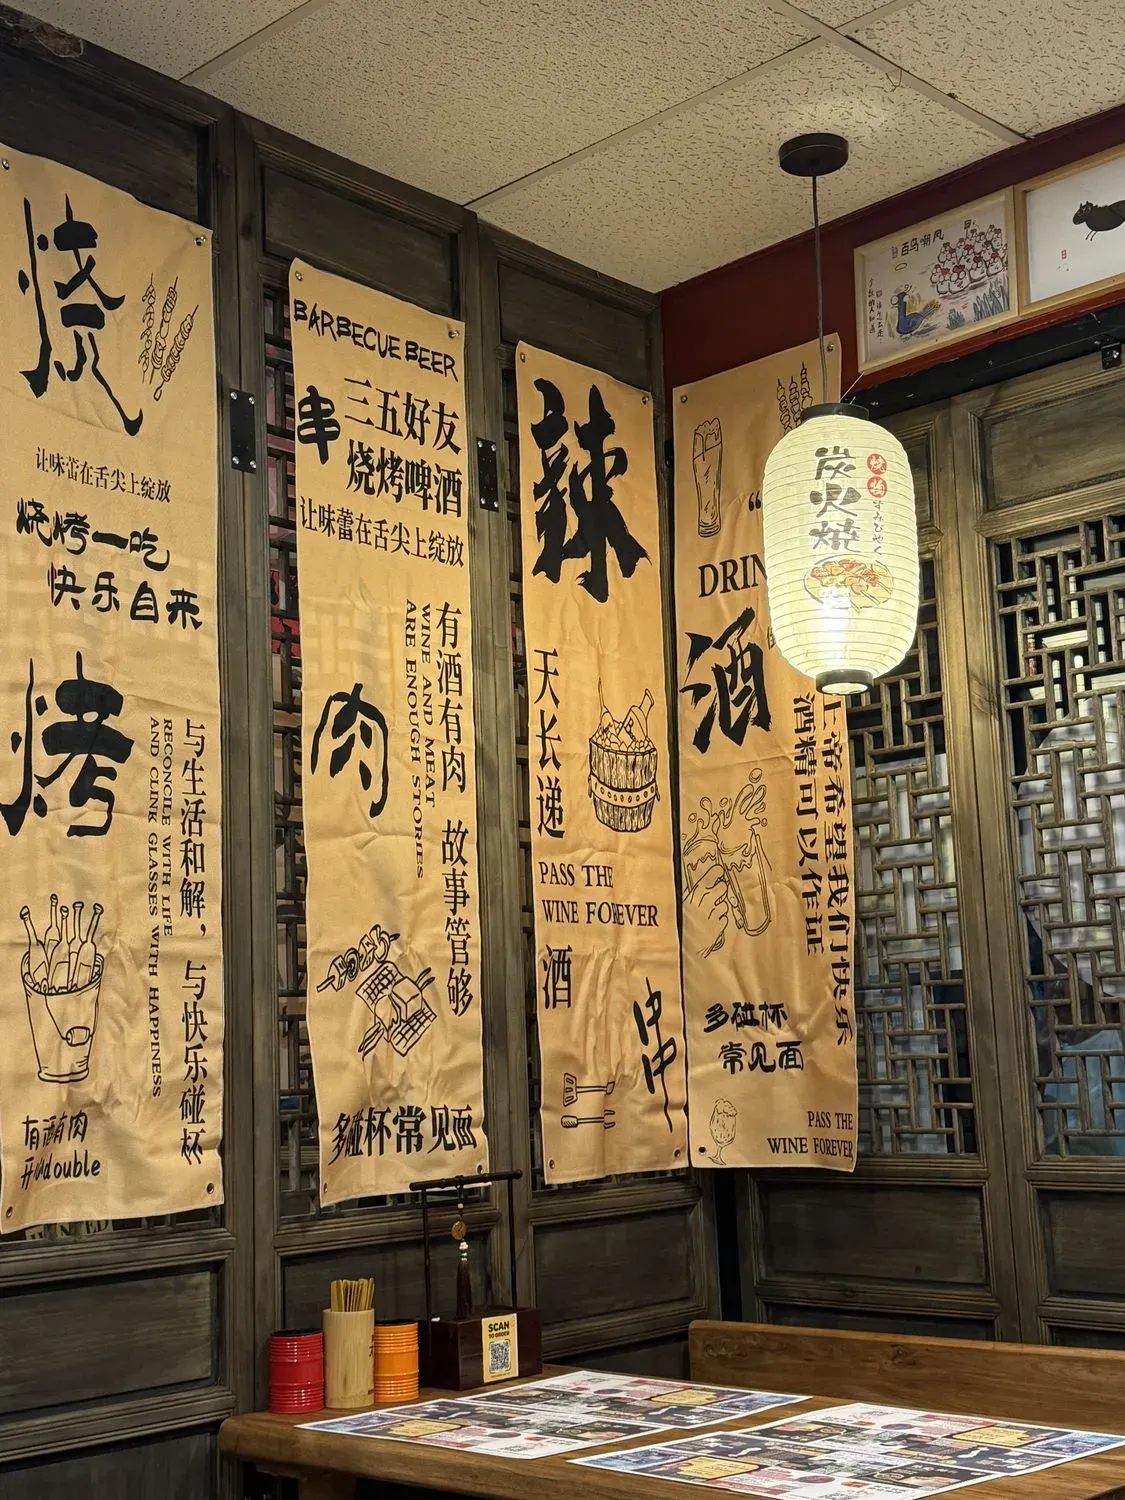 烧
让味蕾在舌尖上绽放
烧烤一吃
快乐自来
烤
与生活和解，与快乐碰杯
RECONCIE WITH LIFE
AND CLINK GLASSES WITH HAPPINESS
有酒有肉
开心double
BARBECUE BEER
串
三五好友
烧烤啤酒
让味蕾在舌尖上绽放
肉
有酒有肉 故事管够
WINE AND MEAT
ARE ENOUGH STORIES
多碰杯常见面
辣
天长递
PASS THE
WINE FOREVER
酒
串
“
DRIN
酒
上帝希望我们快乐
酒精可以作证
多碰杯
常见面
PASS THE
WINE FOREVER
炭火焼
焼鳥
すみびやく
百鸟朝凤
SCAN
TO ORDER